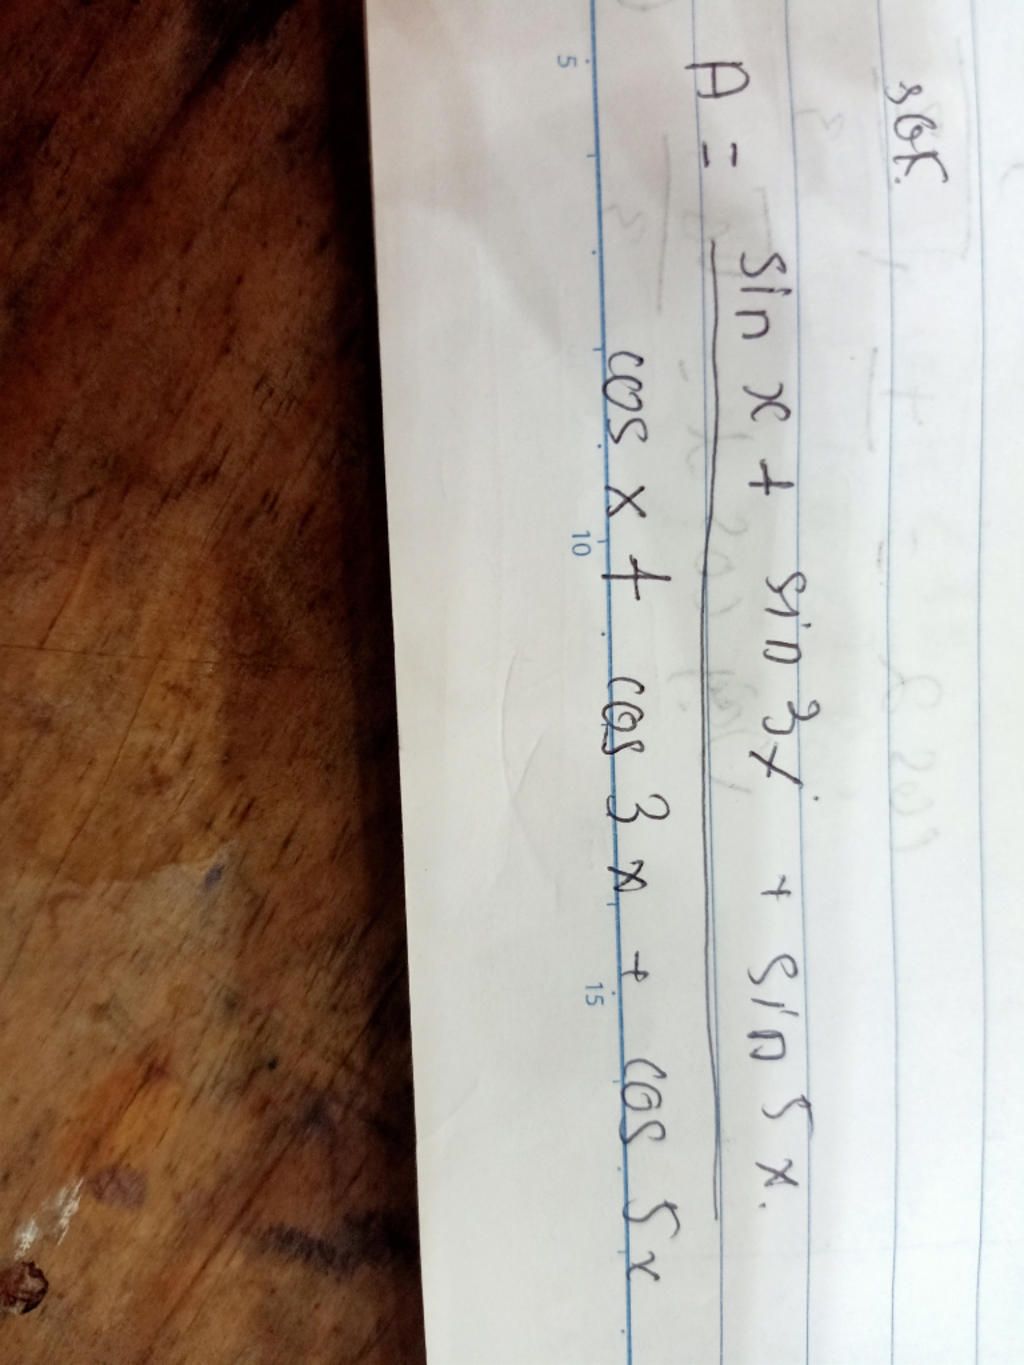 SGK.
A = sin x + sin 3x + sin 5x.
cos x + cos 3x + cos 5x
5 10 15